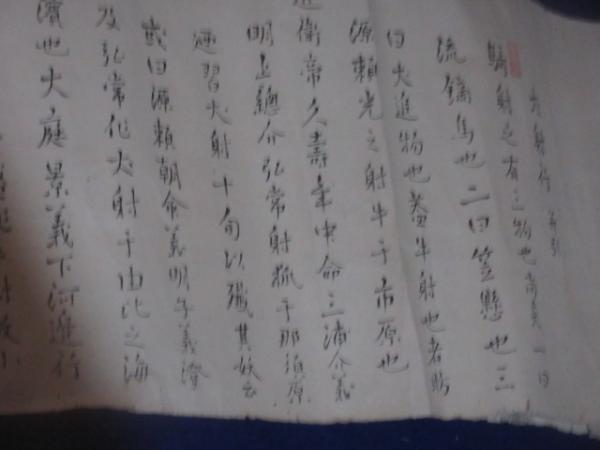 犬射行 并引
騎射之有三物也尚矣一曰
流鏑馬也二曰笠懸也三
曰犬追物也蓋牛射也者昉
源賴光之射牛于市原也
近衛帝久壽年中命三浦介義
明上總介弘常射狐于那須原
習犬射十旬以殲其妖云
或曰源賴朝命義明子義澄
及弘常作犬射于由比之海
濱也大庭景義下河邊行